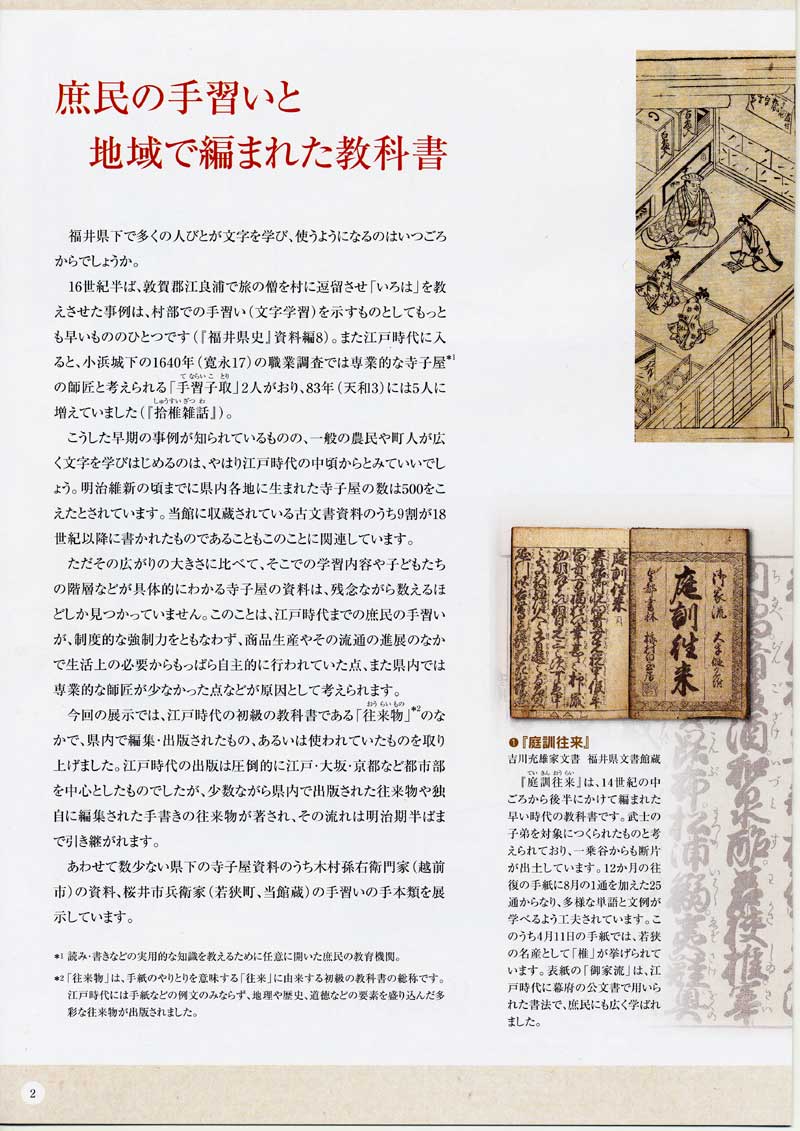 庶民の手習いと
地域で編まれた教科書
福井県下で多くの人びとが文字を学び、使うようになるのはいつごろ
からでしょうか。
16世紀半ば、敦賀郡江良浦で旅の僧を村に逗留させ「いろは」を教
えさせた事例は、村部での手習い(文字学習)を示すものとしてもっと
も早いもののひとつです(『福井県史』資料編8)。また江戸時代に入
ると、小浜城下の1640年(寛永17)の職業調査では専業的な寺子屋*1
て ならい こ とり
の師匠と考えられる「手習子取」2人がおり、83年(天和3)には5人に
しゅうすい ざつ わ
増えていました(『拾椎雑話』)。
こうした早期の事例が知られているものの、一般の農民や町人が広
く文字を学びはじめるのは、やはり江戸時代の中頃からとみていいでし
ょう。明治維新の頃までに県内各地に生まれた寺子屋の数は500をこ
えたとされています。当館に収蔵されている古文書資料のうち9割が18
世紀以降に書かれたものであることもこのことに関連しています。
ただその広がりの大きさに比べて、そこでの学習内容や子どもたち
の階層などが具体的にわかる寺子屋の資料は、残念ながら数えるほ
どしか見つかっていません。このことは、江戸時代までの庶民の手習い
が、制度的な強制力をともなわず、商品生産やその流通の進展のなか
で生活上の必要からもっぱら自主的に行われていた点、また県内では
専業的な師匠が少なかった点などが原因として考えられます。
おう らい もの
今回の展示では、江戸時代の初級の教科書である「往来物」*2のな
かで、県内で編集・出版されたもの、あるいは使われていたものを取り
上げました。江戸時代の出版は圧倒的に江戸・大坂・京都など都市部
を中心としたものでしたが、少数ながら県内で出版された往来物や独
自に編集された手書きの往来物が著され、その流れは明治期半ばま
で引き継がれます。
あわせて数少ない県下の寺子屋資料のうち木村孫右衛門家(越前
市)の資料、桜井市兵衛家(若狭町、当館蔵)の手習いの手本類を展
示しています。
*1 読み・書きなどの実用的な知識を教えるために任意に開いた庶民の教育機関。
*2 「往来物」は、手紙のやりとりを意味する「往来」に由来する初級の教科書の総称です。
江戸時代には手紙などの例文のみならず、地理や歴史、道徳などの要素を盛り込んだ多
彩な往来物が出版されました。
2
庭訓往来
御家流
庭訓往来
❶『庭訓往来』
吉川充雄家文書 福井県文書館蔵
てい きん おう らい
『庭訓往来』は、14世紀の中
ごろから後半にかけて編まれた
早い時代の教科書です。武士の
子弟を対象につくられたものと考
えられており、一乗谷からも断片
が出土しています。12か月の往
復の手紙に8月の1通を加えた25
通からなり、多様な単語と文例が
学べるよう工夫されています。こ
のうち4月11日の手紙では、若狭
の名産として「椎」が挙げられて
います。表紙の「御家流」は、江
戸時代に幕府の公文書で用いら
れた書法で、庶民にも広く学ばれ
ました。